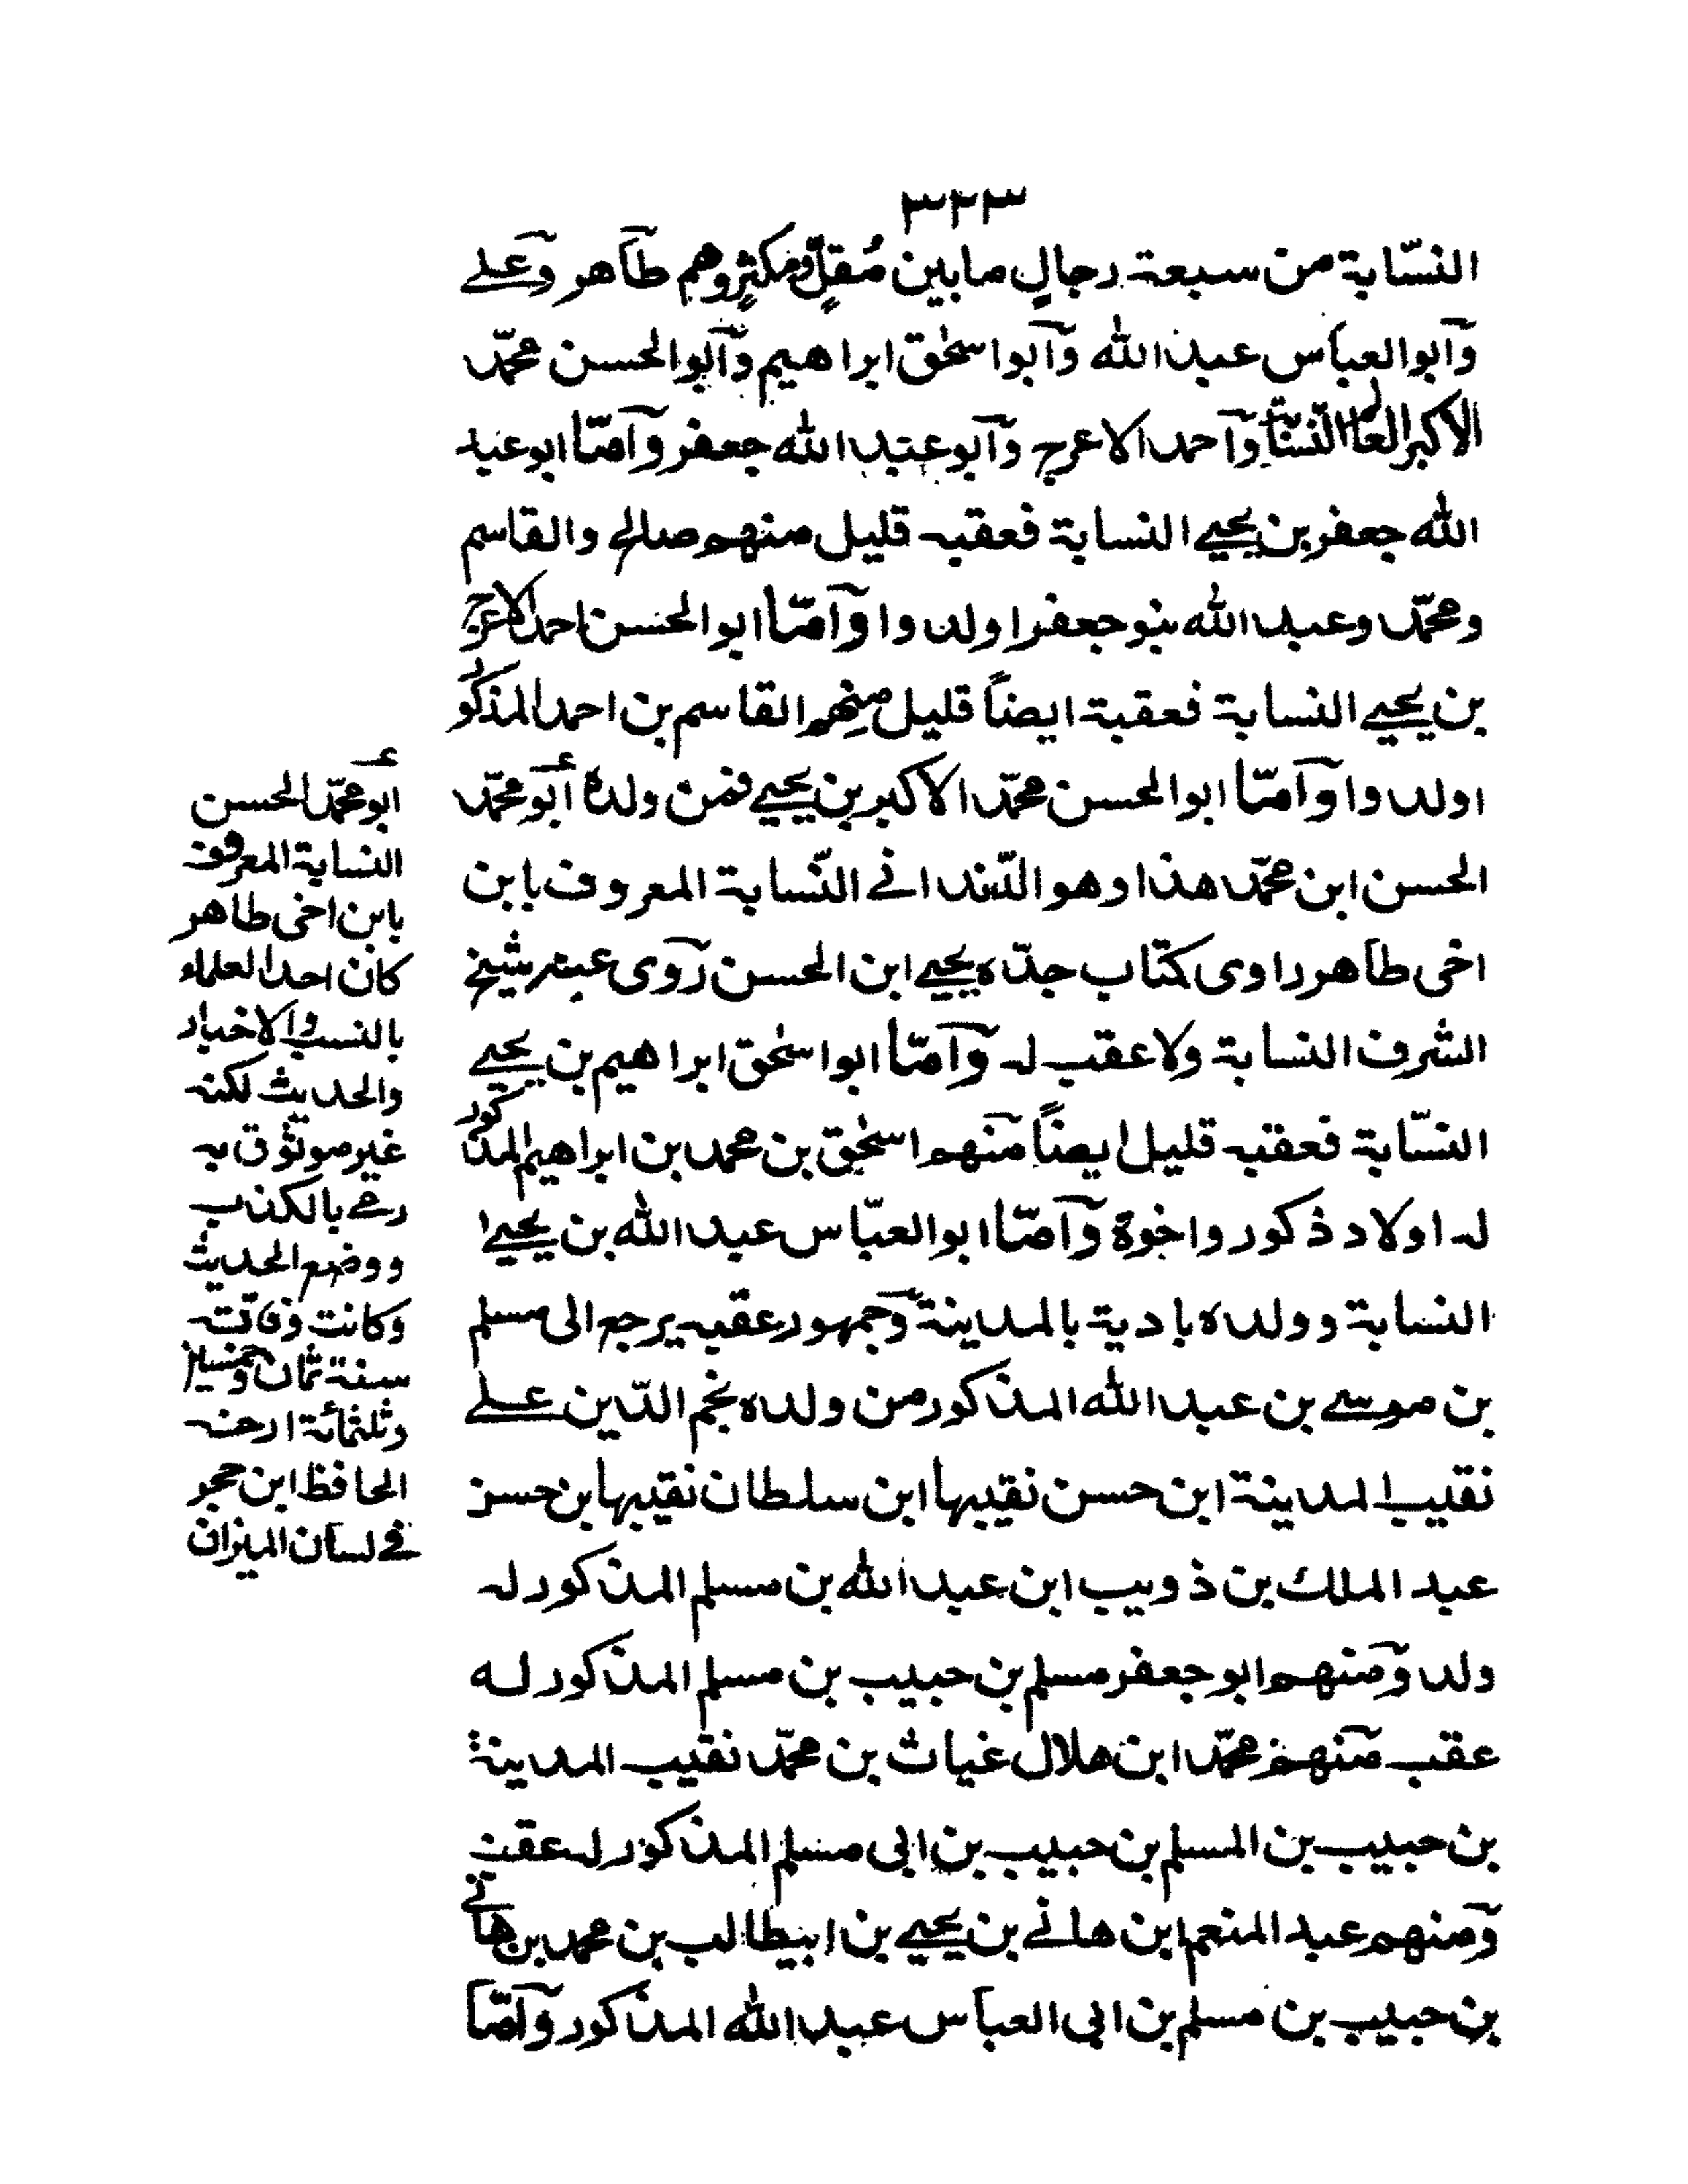 ٣٢٣
النسّابة من سبعة رجالٍ مابين مُقلٍّ ومكثرٍ وهم طاهر وعلے
وآبوالعباس عبدالله وآبواسحٰق ابراهيم وآبوالحسن محمّد
الاكبر العالم النسّابة وآحمد الاعرج وآبوعبدالله جعفر وآمّا ابوعبد
الله جعفر بن يحيے النسابة فعقبه قليل منهم صالح والقاسم
ومحمّد وعبدالله بنو جعفر اولدوا وآمّا ابوالحسن احمد الاعرج
بن يحيے النسابة فعقبة ايضاً قليل منهم القاسم بن احمد المذكور
اولدوا وآمّا ابوالحسن محمّد الاكبر بن يحيے فمن ولده أبو محمّد
الحسن ابن محمّد هذا وهو الدّندانے النّسابة المعروف بابن
اخی طاهر راوی كتاب جدّه يحيے ابن الحسن رَوی عنه شيخ
الشرف النسابة ولاعقب له وآمّا ابواسحٰق ابراهيم بن يحيے
النسّابة فعقبه قليل ايضاً منهم اسحٰق بن محمد بن ابراهيم المذكور
له اولاد ذكور واخوة وآمّا ابوالعبّاس عبدالله بن يحيےٰ
النسابة وولده بادية بالمدينة وجمهور عقبه يرجع الی مسلم
بن موسے بن عبدالله المذكور من ولده نجم الدّين علے
نقيب المدينة ابن حسن نقيبها ابن سلطان نقيبها بن حسن
عبد الملك بن ذويب ابن عبدالله بن مسلم المذكور له
ولد ومنهم ابوجعفر مسلم بن حبيب بن مسلم المذكور له
عقب منهم محمّد ابن هلال غياث بن محمّد نقيب المدينة
بن حبيب بن المسلم بن حبيب بن ابی مسلم المذكور له عقب
ومنهم عبد المنعم ابن هانے بن يحيے بن ابيطالب بن محمد بن هانے
بن حبيب بن مسلم بن ابی العباس عبدالله المذكور وآمّا
عـه
ابو محمّد الحسن
النسابة المعروف
بابن اخی طاهر
كان احد العلماء
بالنسب والاخبار
والحديث لكنه
غير موثوق به
رمے بالكذب
ووضع الحديث
وكانت وفاته
سنة ثمان وخمسين
وثلثمائة ارخه
الحافظ ابن حجر
فے لسان الميزان